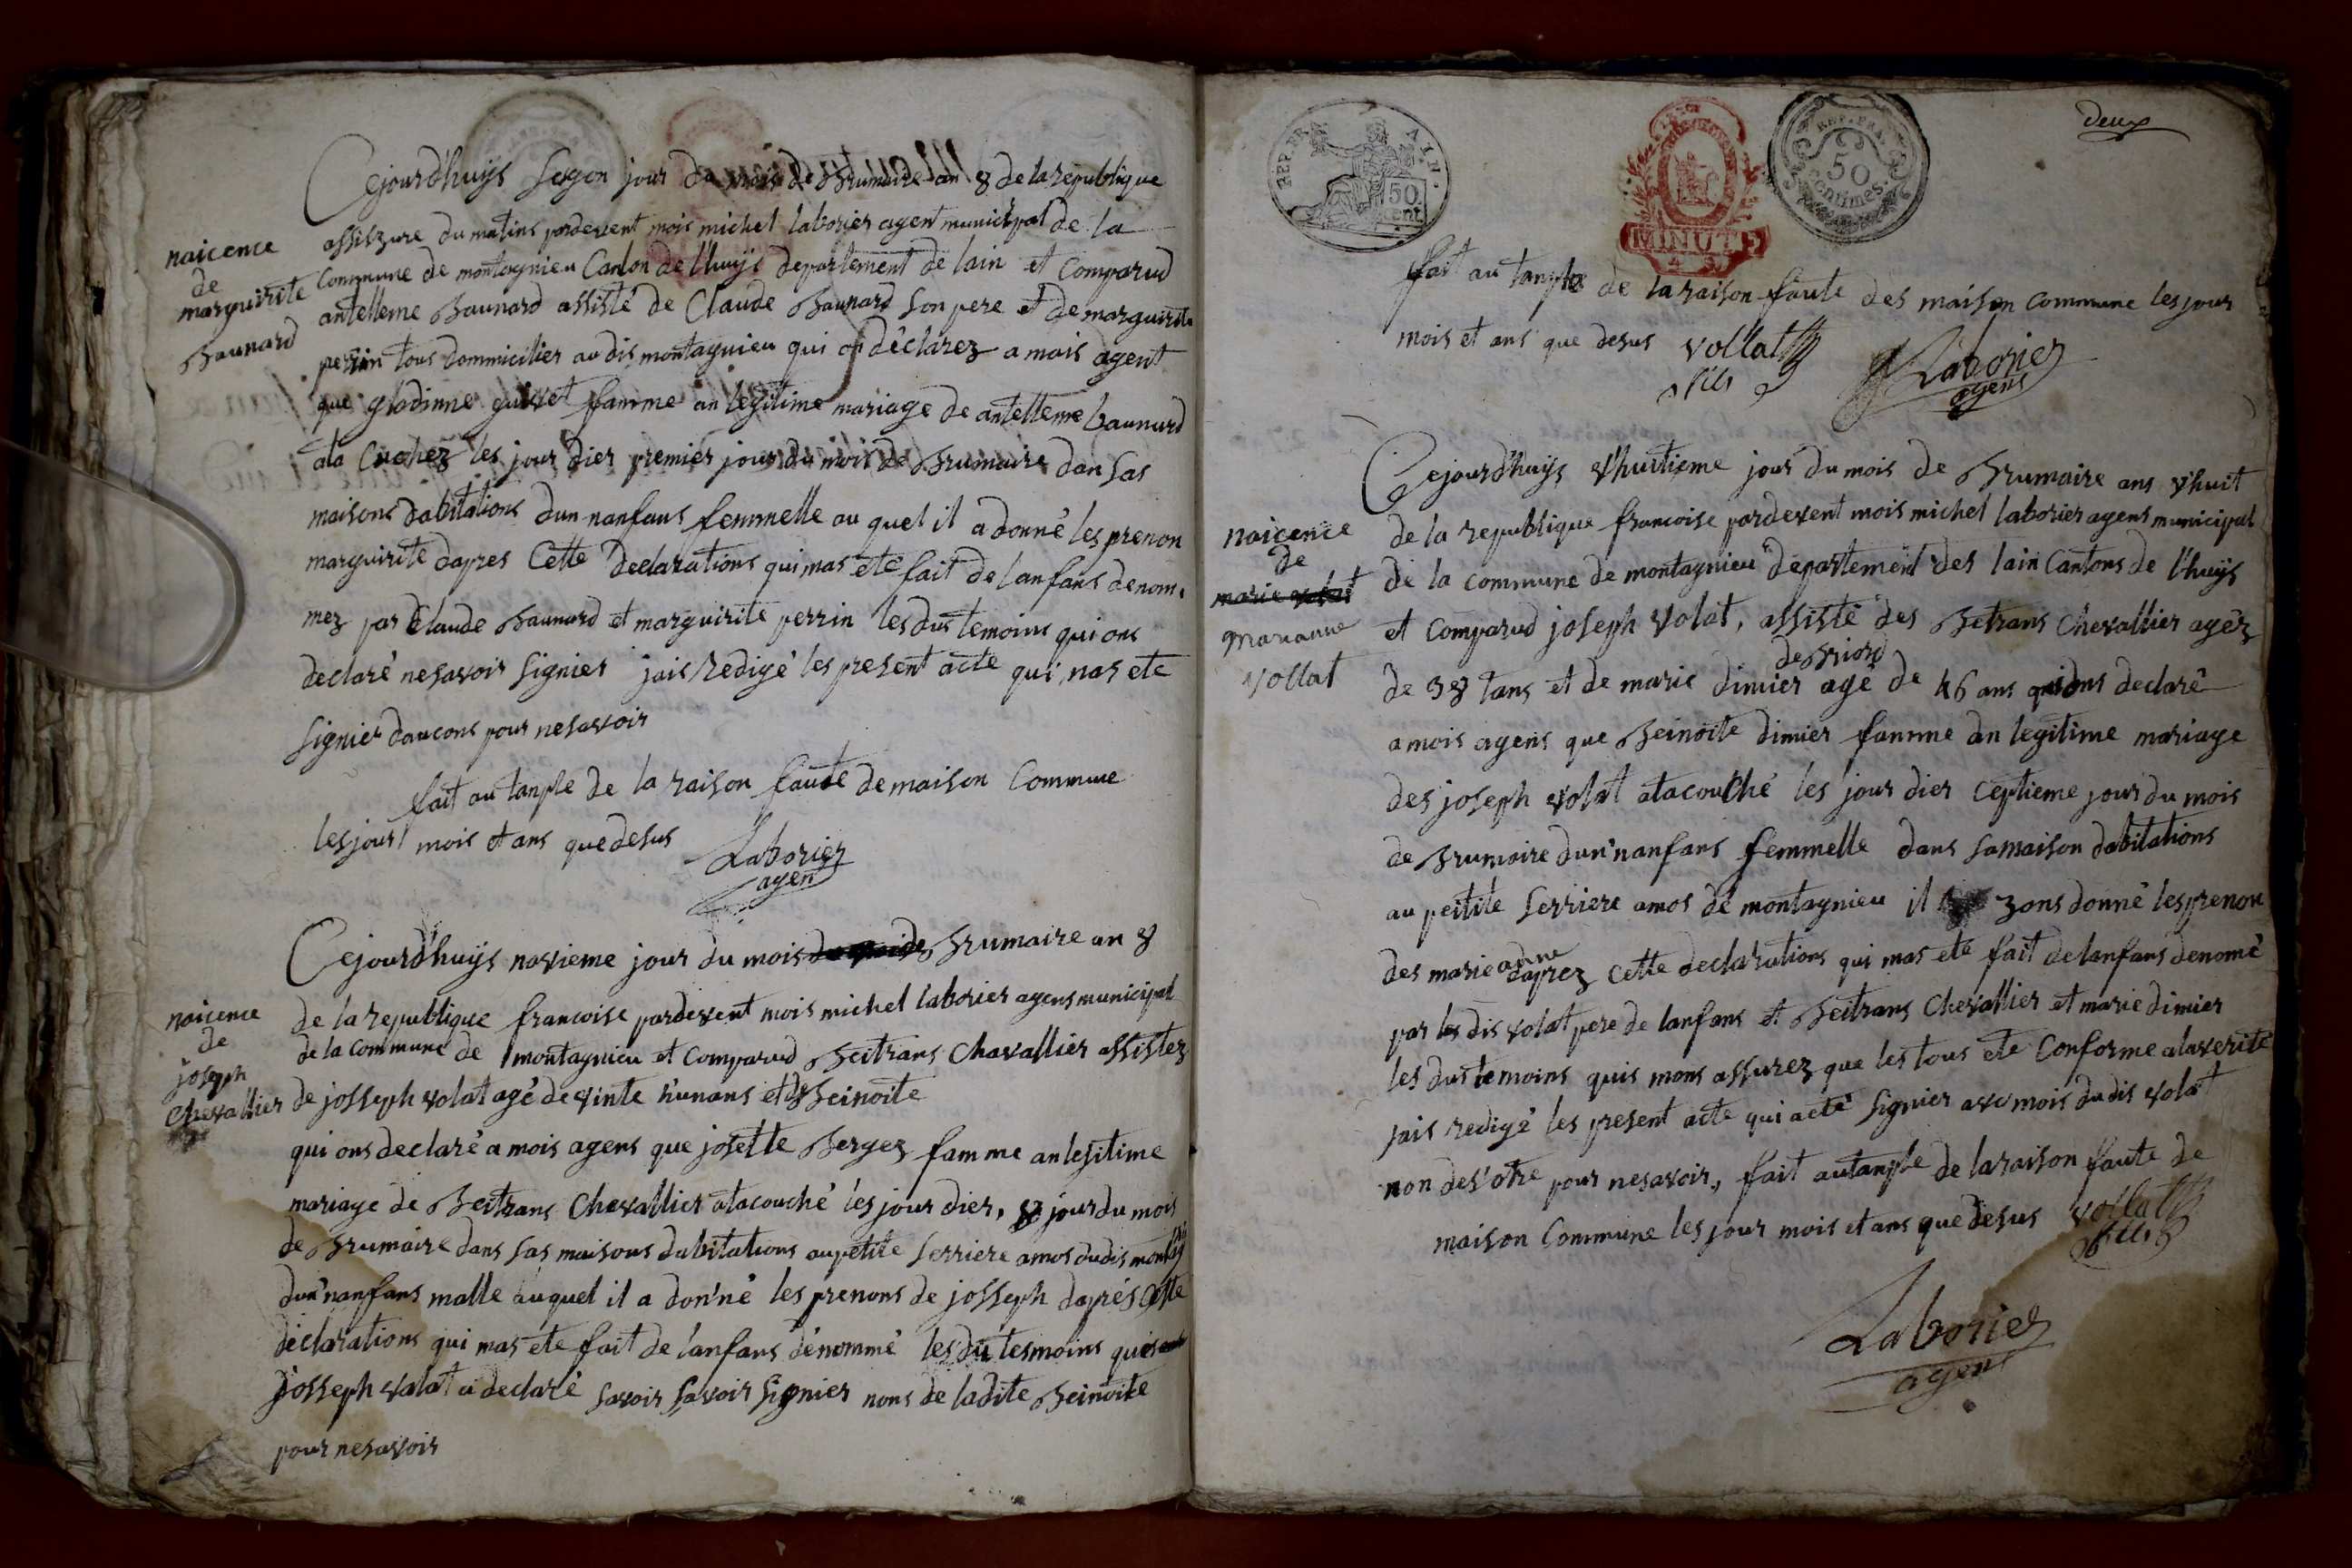 Cejourd'huys segon jour du mois de Brumaire an 8 de la republique
assiszure du matins pardevent mois michel laborier agent municipal de la
naicence
de
marguirite
Baunard
Commune de montagnieu Canton de l'huys departement de lain et Comparud
antelleme Baunard assisté de Claude Baunard son pere et de marguirite
perrin tous dommicilier au dis montagnieu qui on déclarez a mois agent
que glodinne guivet famme an legitime mariage de antelleme baunard
ata Cuchez les jour dier premier jour du mois de Brumaire dan sas
maisons dabitations dun nanfans femmelle au quel il a donné les prenon
marguirite dapres Cette Declarations qui mas ete fait de lanfans denom.
mez par Claude Baunard et marguirite perrin les dus temoins qui ons
declaré nesavoir signier jais redigé les present acte qui nas ete
signier daucons pour nesavoir
fait au tanple de la raison faute de maison Commune
les jour mois et ans que desus Laborier
agen
Cejourd'huys novieme jour du mois Brumaire an 8
naicence
de
joseph
Chevallier
de la republique francoise pardevent mois michel laborier agens municipal
de la commune de montagnieu et Comparud Beitrans Chavallier assistez
de josseph volat agé de vinte hunans et de Beinoite
qui ons declaré a mois agens que josette Berger famme an legitime
mariage de Beitrans Chevallier atacouché les jour dier, 8 jour du mois
de Brumaire dans sas maisons dabitations au petite serriere amos dudis
dun'nanfans malle auquel il a don'né les prenons de josseph daprés Cette
déclarations qui mas ete fait de lanfans dénommé les du tesmoins
josseph valat a declaré savoir savoir signier nons de la dite Beinoite
pour nesavoir
REP. FRA.
AIN.
50
cent
MINUTE
REP. FRA.
50
centimes
deux
fait au tanple de la raison faute des maison commune les jour
mois et ans que desus vollat
fils
Laborier
agens
Cejourd'huys vhuitieme jour du mois de Brumaire ans vhuit
naicence
de
marie volat
marianne
vollat
de la republique francoise pardevent mois michel laborier agens municipal
de la commune de montagnieu departement des lain Cantons de l'huys
et comparud joseph volat, assisté des Betrans Chevallier agez
de Briord
de 38 tans et de marie dimier agé de 46 ans qui ons declaré
a mois agens que Beinoite dimier famme an legitime mariage
des joseph volat atacouché les jour dier ceptieme jour du mois
de Brumaire dun'nanfans femmelle dans sa maison dabitations
au petite serriere amos de montagnieu il zons donné les prenon
des marie anne daprez cette declarations qui mas ete fait de lanfans denomé
par les dis volat pere de lanfans et Beitrans Chevallier et marie dimier
les dus temoins quis mons assurez que les tous ete Conforme alaverité
jais redigé les present acte qui acté signier avc mois du dis volat
non des'otre pour nesavoir, fait autanple de laraison faute de
maison Commune les jour mois et ans que desus vollat
fils
Laborier
agens